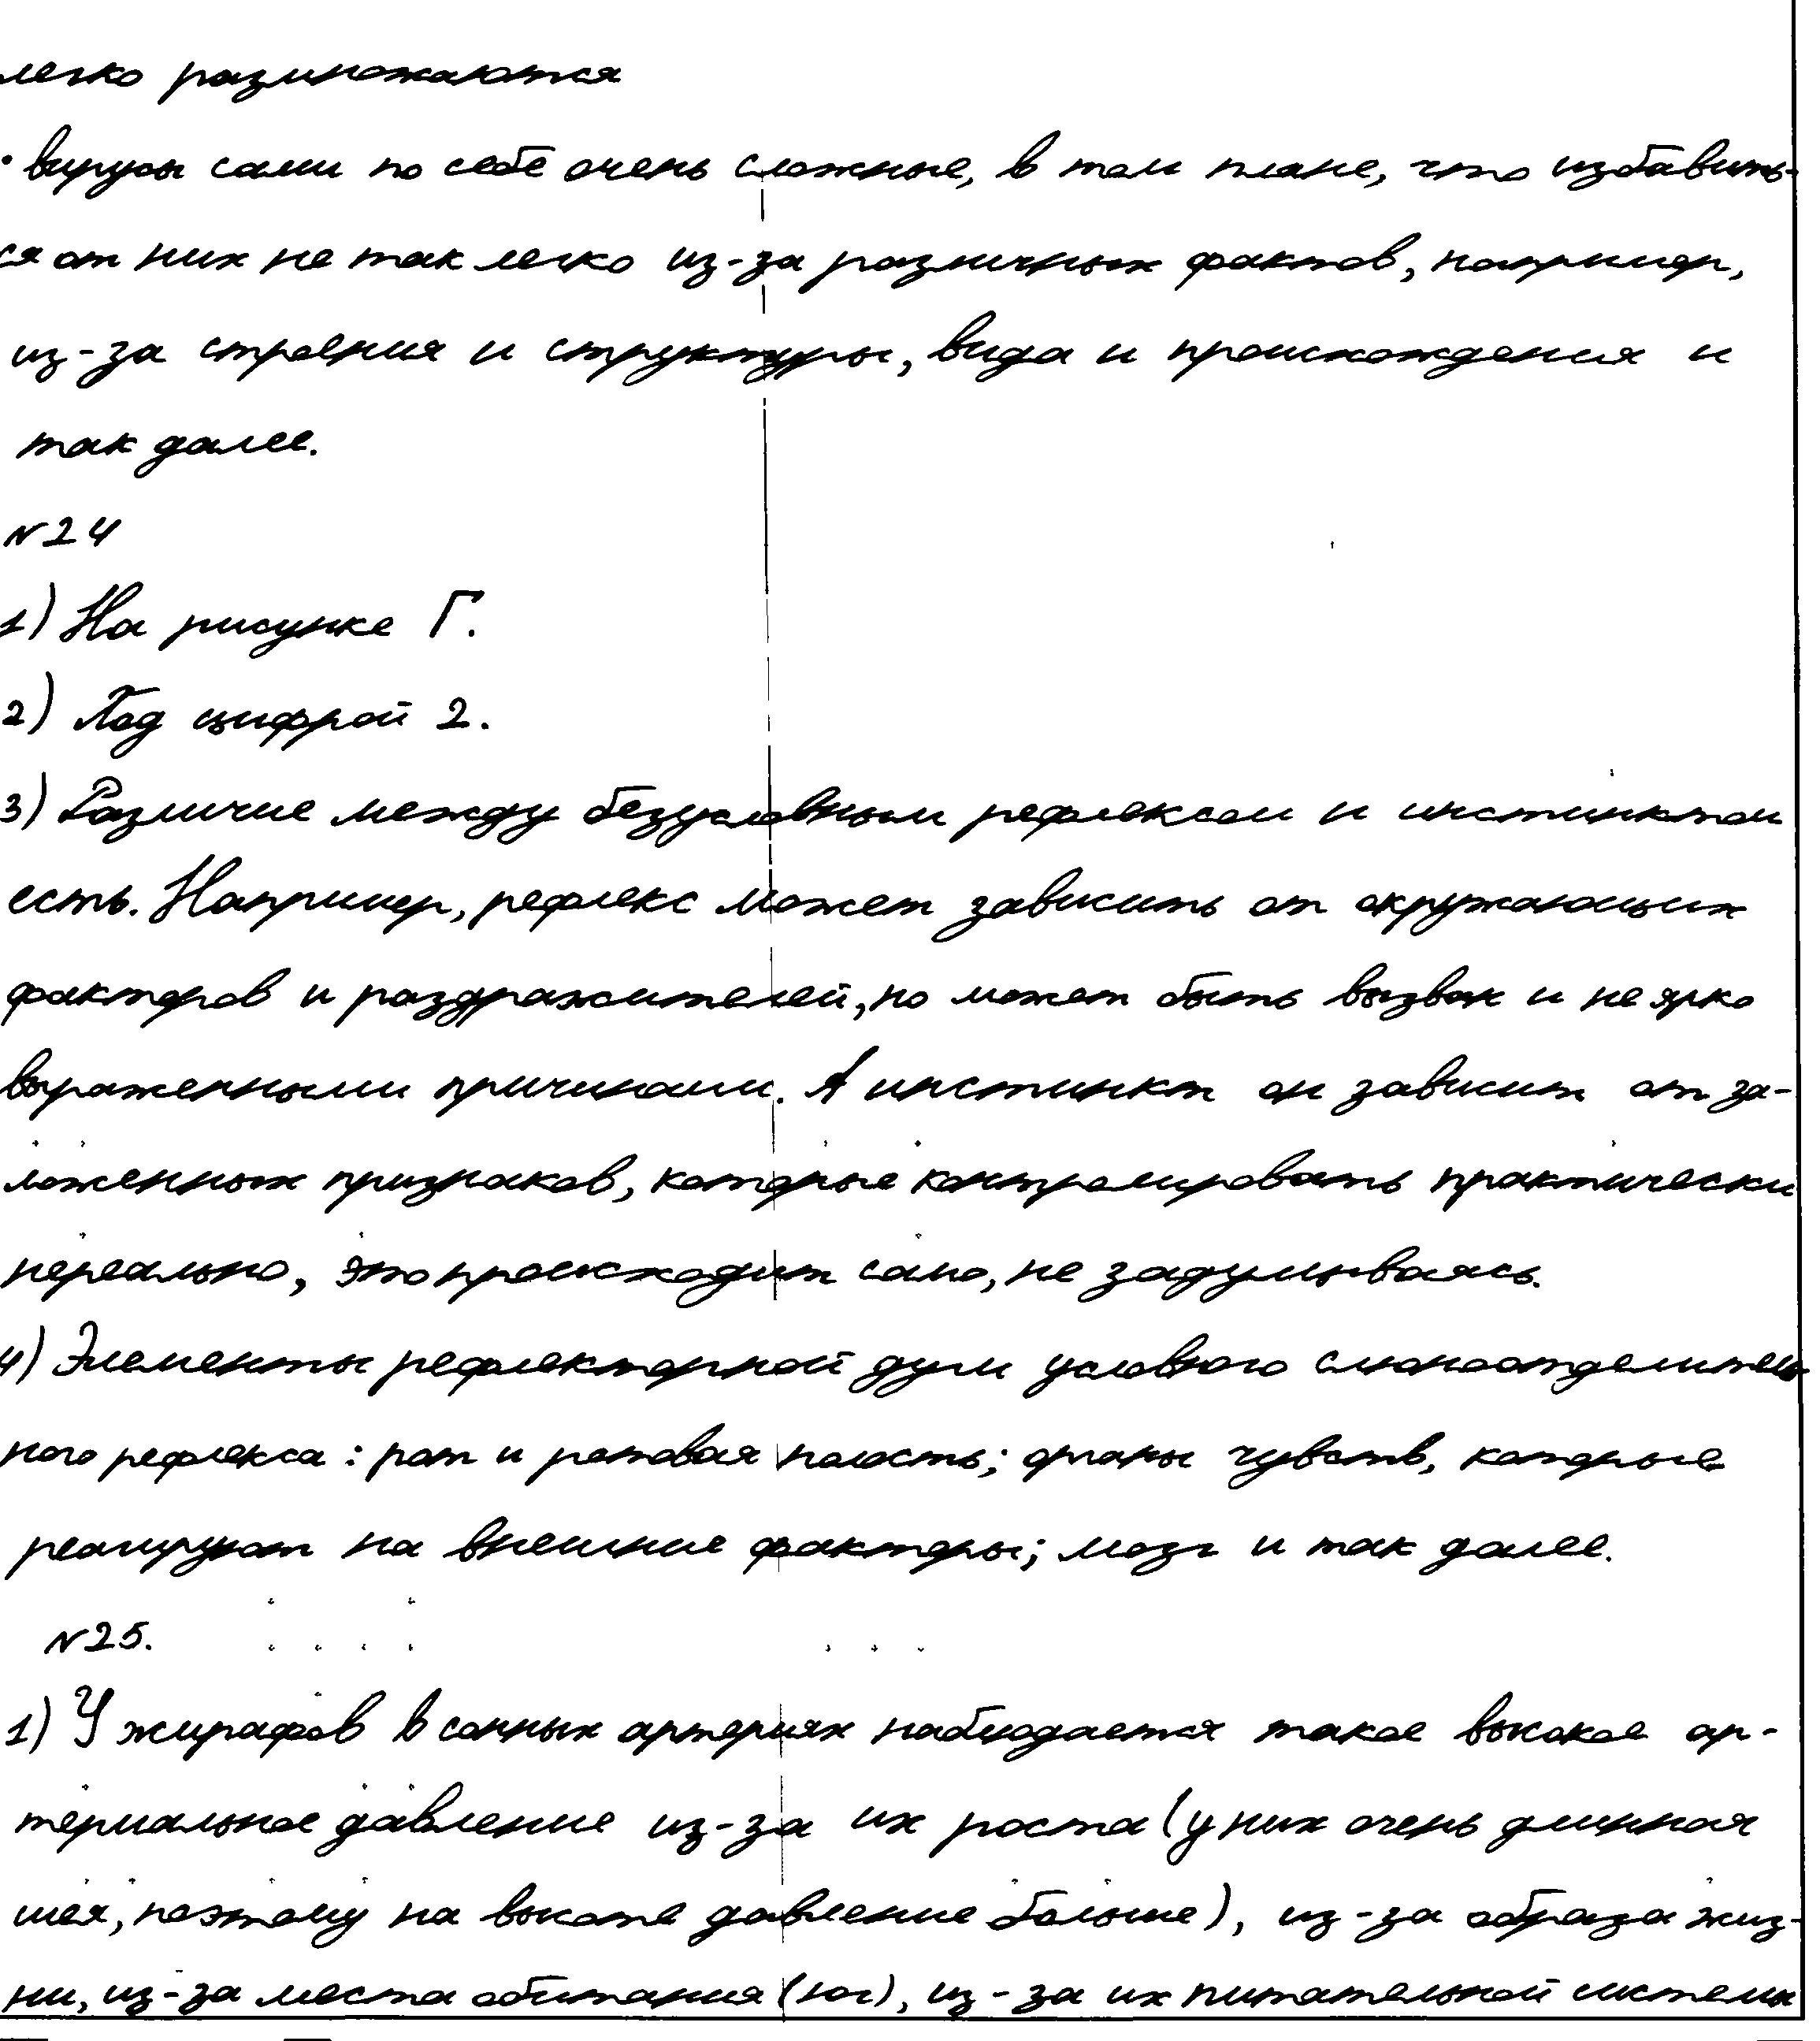 легко размножаются
• вирусы сами по себе очень сложные, в том плане, что избавить-
ся от них не так легко из-за различных фактов, например,
из-за строения и структуры, вида и происхождения и
так далее.
№24
1) На рисунке Г.
2) Под цифрой 2.
3) Различие между безусловным рефлексом и инстинктом
есть. Например, рефлекс может зависить от окружающих
факторов и раздражителей, но может быть вызван и не ярко
выраженными причинами. А инстинкт он зависит от за-
ложенных признаков, которые контролировать практически
нереально, это происходит само, не задумываясь.
4) Элементы рефлекторной дуги условного слюноотделитель-
ного рефлекса: рот и ротовая полость; органы чувств, которые
реагируют на внешние факторы; мозг и так далее.
№25.
1) У жирафов в сонных артериях наблюдается такое высокое ар-
териальное давление из-за их роста (у них очень длинная
шея, поэтому на высоте давление больше), из-за образа жиз-
ни, из-за места обитания (юг), из-за их питательной системы